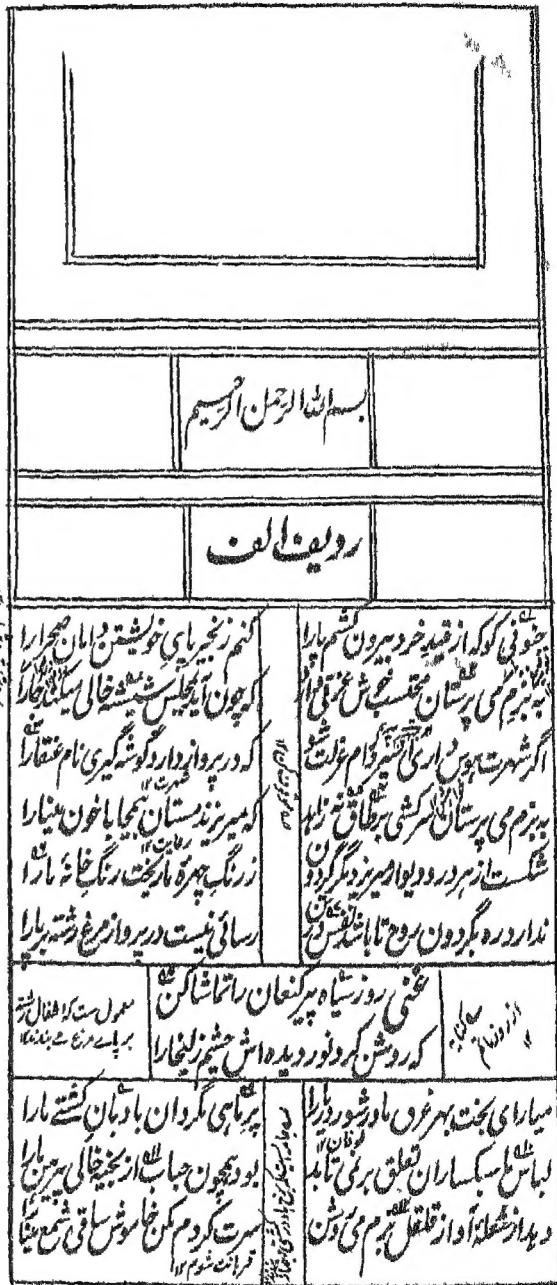 بسم الله الرحمن الرحيم
ردیف الف
جنونی کو که از قید خرد بیرون کشم پا را
کنم زنجیر پای خویشتن دامان صحرا را
به بزم می پرستان محتسب خوش عزتی دارد
که چون آید بمجلس شیشه خالی میکند جا را
اگر شهرت هوس داری اسیر دام عزلت شو
که در پرواز دارد گوشه گیری نام عنقا را
به بزم می پرستان سرکشی بر طاق نه زاهد
که میریزند مستان بیمحابا خون مینا را
شکست از هر در و دیوار میریزد مگر گردون
ز رنگ چهرهٔ ما ریخت رنگ خانهٔ ما را
ندارد ره بگردون روح تا باشد نفس در تن
رسائی نیست در پرواز مرغ رشته بر پا را
غنی روز سیاه پیر کنعان را تماشا کن
که روشن کرد نور دیده اش چشم زلیخا را
معمول ست که اطفال رشته
بر پاے مرغ مے بندند ۱۲
میار ای بخت بهر غرق ما در شور دریا را
پر ماهی مگردان بادبان کشتے ما را
لباس ما سبکساران تعلق بر نمی تابد
بود همچون حباب از بخیه خالی پیرهن ما را
دهد از شعلهٔ آواز قلقل بزم می روشن
سرت گردم مکن خاموش ساقی شمع مینا را
قربانت شوم ۱۲